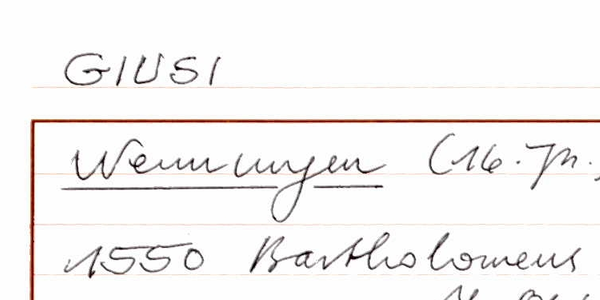 GIUSI
Wenningen (16. Jh.)
1550 Bartholomeus